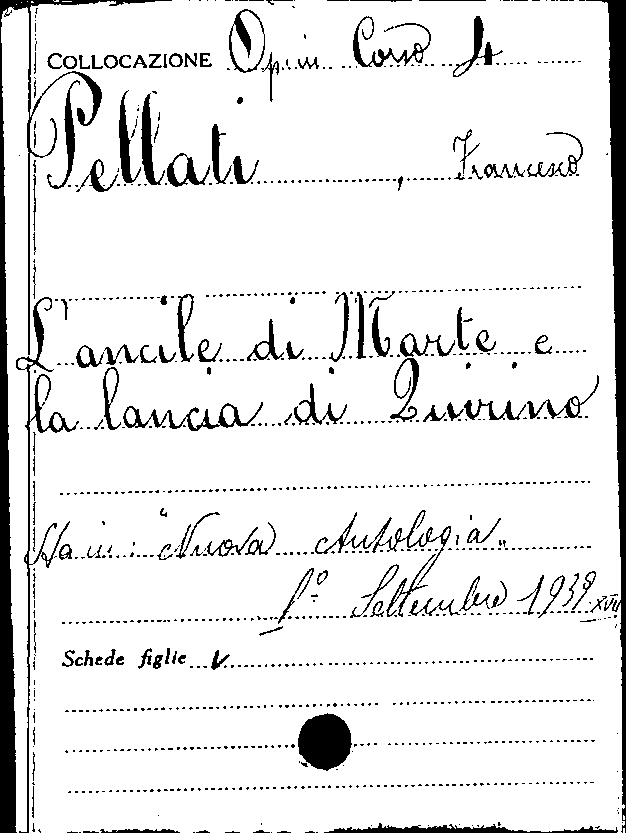 COLLOCAZIONE Opin Corso 4
Pellati, Francesco
L'ancile di Marte e
la lancia di Quirino
Sta in: "Nuova Antologia„
1º Settembre 1939 XVII
Schede figlie V